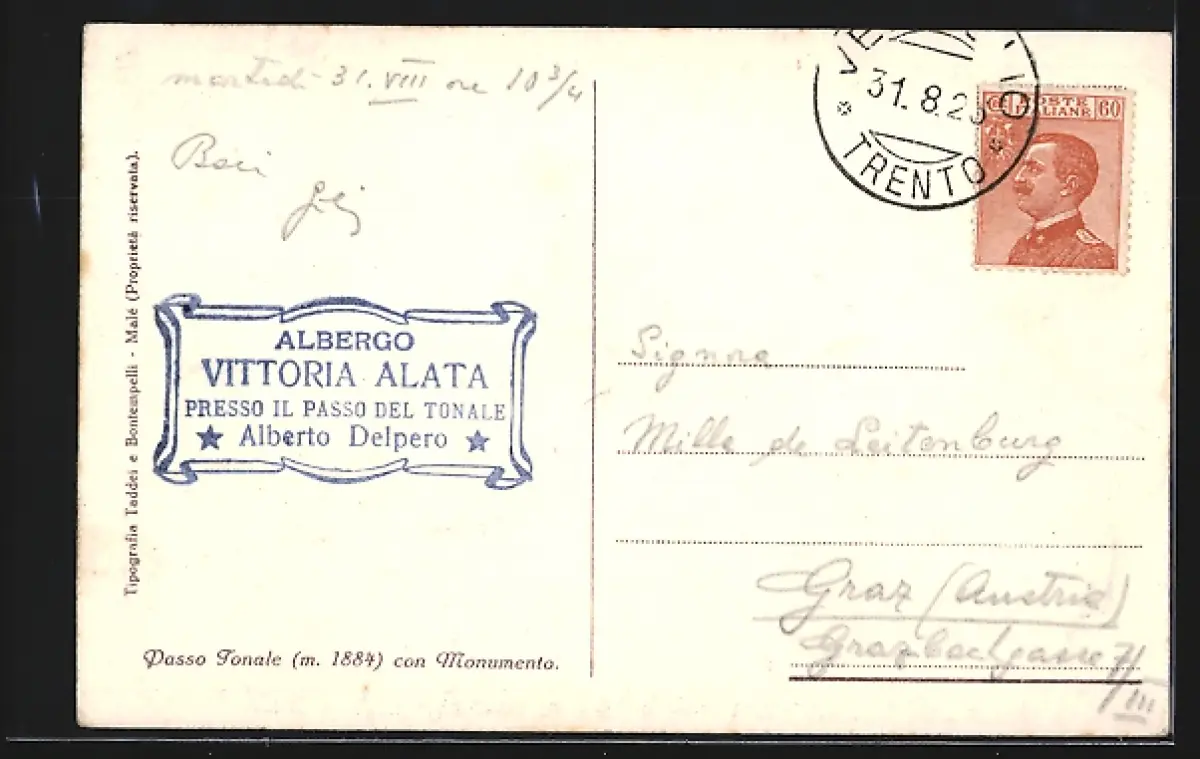 martedi 31. VIII ore 10 3/4
Baci
Tipografia Taddei e Bontempelli - Malé (Proprietà riservata).
ALBERGO
VITTORIA ALATA
PRESSO IL PASSO DEL TONALE
★ Alberto Delpero ★
Passo Tonale (m. 1884) con Monumento.
31.8.2
* TRENTO *
POSTE
ITALIANE
60
Signora
Mille de Leitenburg
Graz (Austria)
Grazbachgasse 7/III